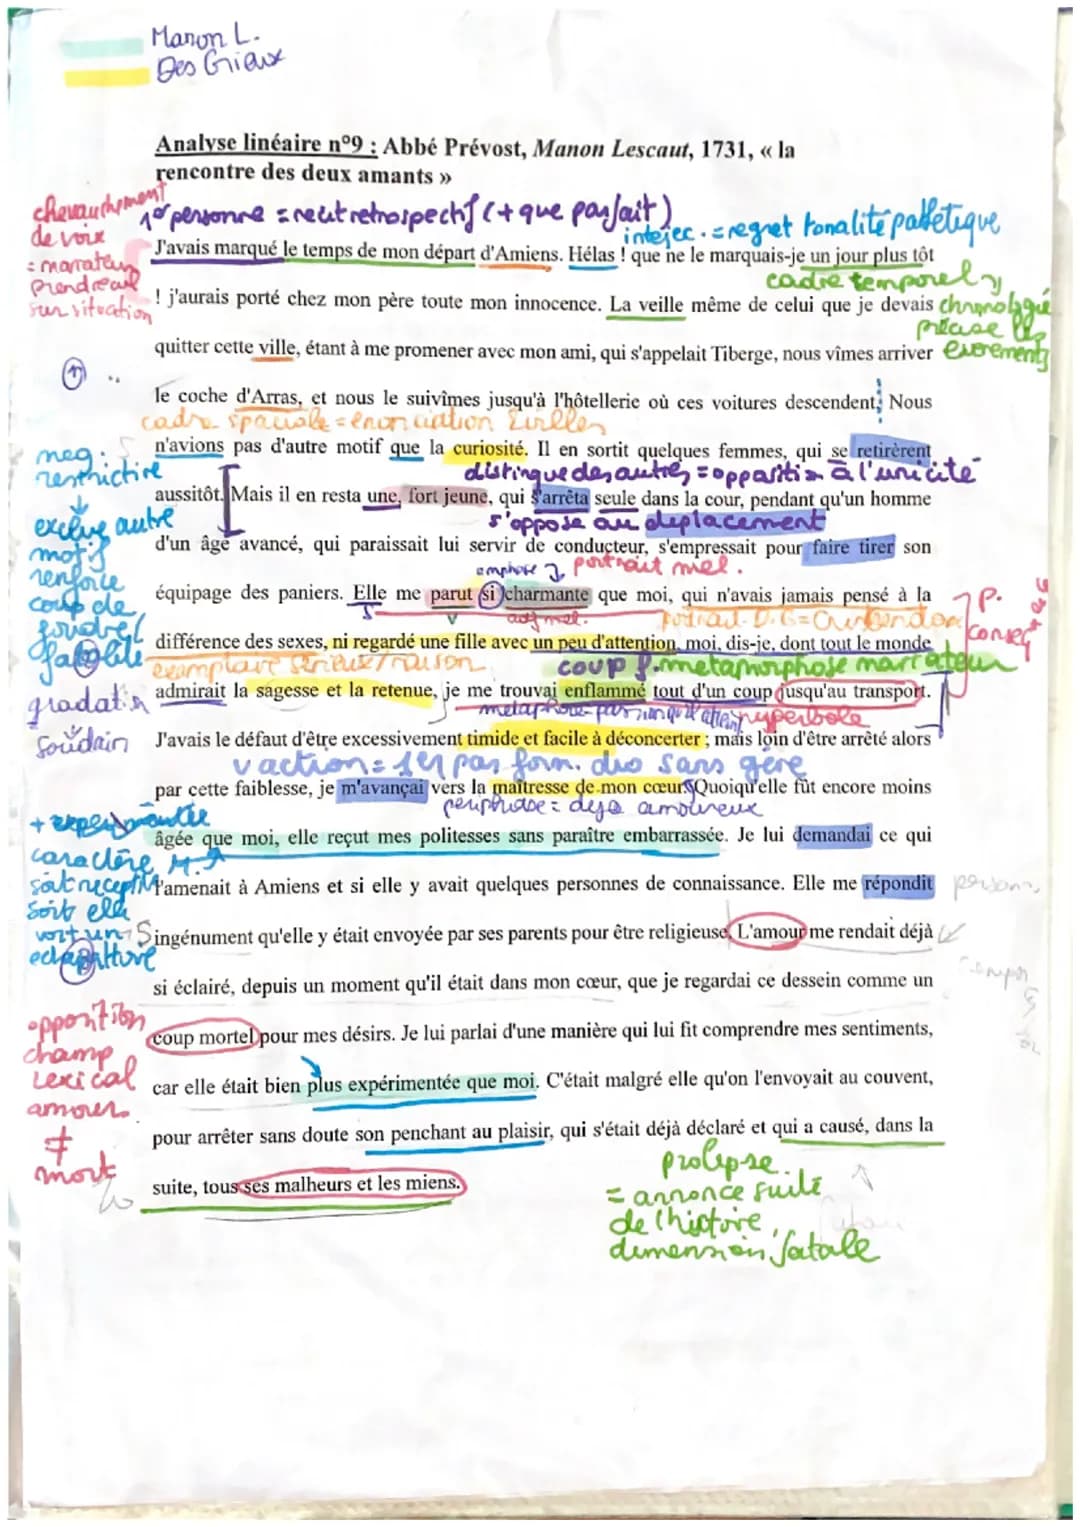 Manon L.
Des Grieux
Analyse linéaire n°9 : Abbé Prévost, Manon Lescaut, 1731, « la
rencontre des deux amants »
chevauchement
de voix
= narrateur
prend recul
sur situation
1e personne = récit rétrospectif (+ que parfait)
interjec. = regret tonalité pathétique
J'avais marqué le temps de mon départ d'Amiens. Hélas ! que ne le marquais-je un jour plus tôt
cadre temporel
! j'aurais porté chez mon père toute mon innocence. La veille même de celui que je devais
chronologie
précise les
evenements
quitter cette ville, étant à me promener avec mon ami, qui s'appelait Tiberge, nous vîmes arriver
le coche d'Arras, et nous le suivîmes jusqu'à l'hôtellerie où ces voitures descendent. Nous
cadre spaciale = enonciation
n'avions pas d'autre motif que la curiosité. Il en sortit quelques femmes, qui se retirèrent
neg.
restrictive
exclue autre
motif
renforce
coup de
foudre/
distingue des autres = opposition à l'unicité
aussitôt. Mais il en resta une, fort jeune, qui s'arrêta seule dans la cour, pendant qu'un homme
s'oppose au deplacement
d'un âge avancé, qui paraissait lui servir de conducteur, s'empressait pour faire tirer son
emphase
portrait mel.
équipage des paniers. Elle me parut si charmante que moi, qui n'avais jamais pensé à la
V
adj mel.
portrait D.G =
P.
conseq
différence des sexes, ni regardé une fille avec un peu d'attention, moi, dis-je, dont tout le monde
exemplaire sérieux/raison
coup f. metamorphose narrateur
admirait la sagesse et la retenue, je me trouvai enflammé tout d'un coup jusqu'au transport.
gradation
soudain
hyperbole
J'avais le défaut d'être excessivement timide et facile à déconcerter ; mais loin d'être arrêté alors
v action = 1er pas
par cette faiblesse, je m'avançai vers la maîtresse de mon cœur. Quoiqu'elle fût encore moins
periphrase = deja amoureux
+ experimentée
caractère M.
âgée que moi, elle reçut mes politesses sans paraître embarrassée. Je lui demandai ce qui
l'amenait à Amiens et si elle y avait quelques personnes de connaissance. Elle me répondit
soit elle
voit un
ingénument qu'elle y était envoyée par ses parents pour être religieuse. L'amour me rendait déjà
si éclairé, depuis un moment qu'il était dans mon cœur, que je regardai ce dessein comme un
opposition
champ
Lexical
amour
≠
mort
coup mortel pour mes désirs. Je lui parlai d'une manière qui lui fit comprendre mes sentiments,
car elle était bien plus expérimentée que moi. C'était malgré elle qu'on l'envoyait au couvent,
pour arrêter sans doute son penchant au plaisir, qui s'était déjà déclaré et qui a causé, dans la
suite, tous ses malheurs et les miens.
prolepse
= annonce suite
de l'histoire,
dimension fatale